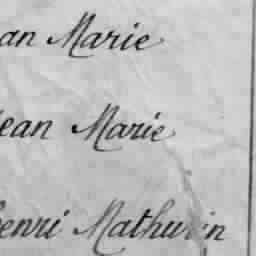 an Marie
Jean Marie
henri Mathurin